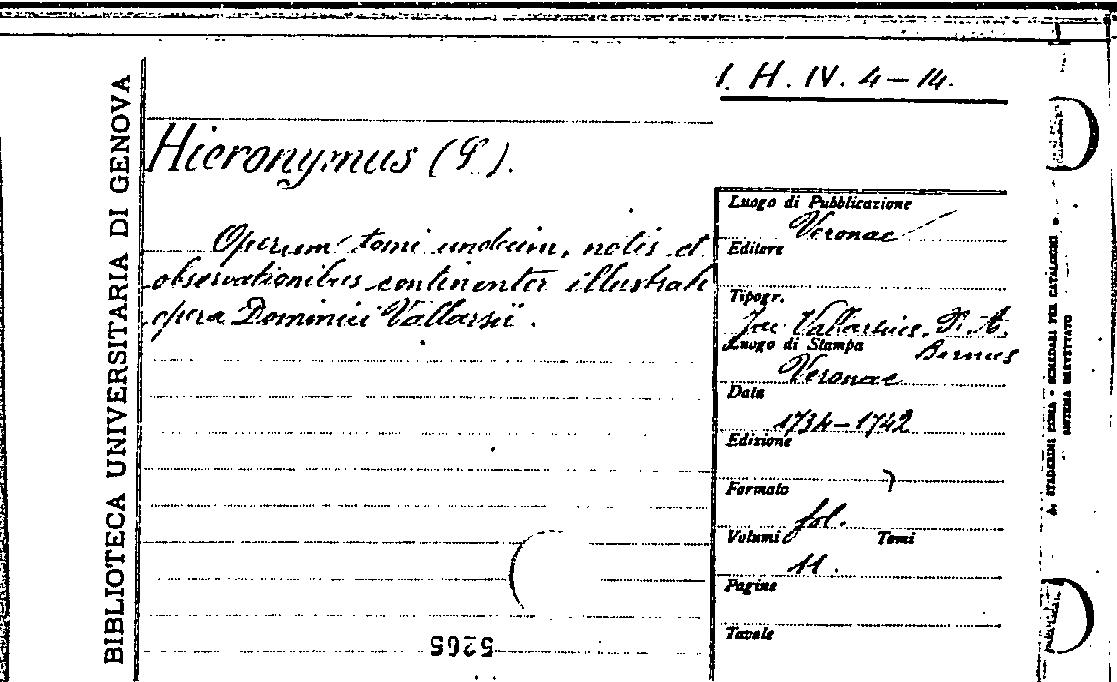 BIBLIOTECA UNIVERSITARIA DI GENOVA
1. H. IV. 4-14.
Hieronymus (S.).
Operum tomi undecim, notis et
observationibus continenter illustrati
opera Dominici Vallarsii.
Luogo di Pubblicazione
Veronae
Editore
Tipogr.
Jac. Vallarsius, P. A.
Bernus
Luogo di Stampa
Veronae
Data
1734-1742
Edizione
Formato
fol.
Volumi
Tomi
11.
Pagine
Tavole
5265